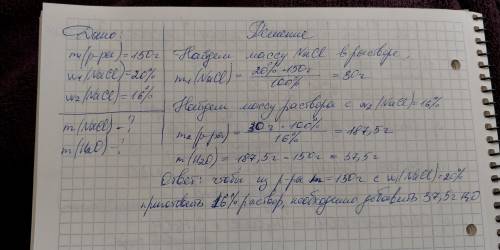 Дано:
m(р-ра) = 150г
w₁(NaCl) = 20%
w₂(NaCl) = 16%
m(NaCl) - ?
m(H₂O) - ?
Решение
Найдем массу NaCl в растворе,
m₁(NaCl) = 20% · 150г / 100% = 30г.
Найдем массу раствора с w₂(NaCl) = 16%
m₂(р-ра) = 30г · 100% / 16% = 187,5г
m(H₂O) = 187,5г - 150г = 37,5г
Ответ: чтобы из р-ра m = 150г с w₁(NaCl) = 20%
приготовить 16% раствор, необходимо добавить 37,5г H₂O